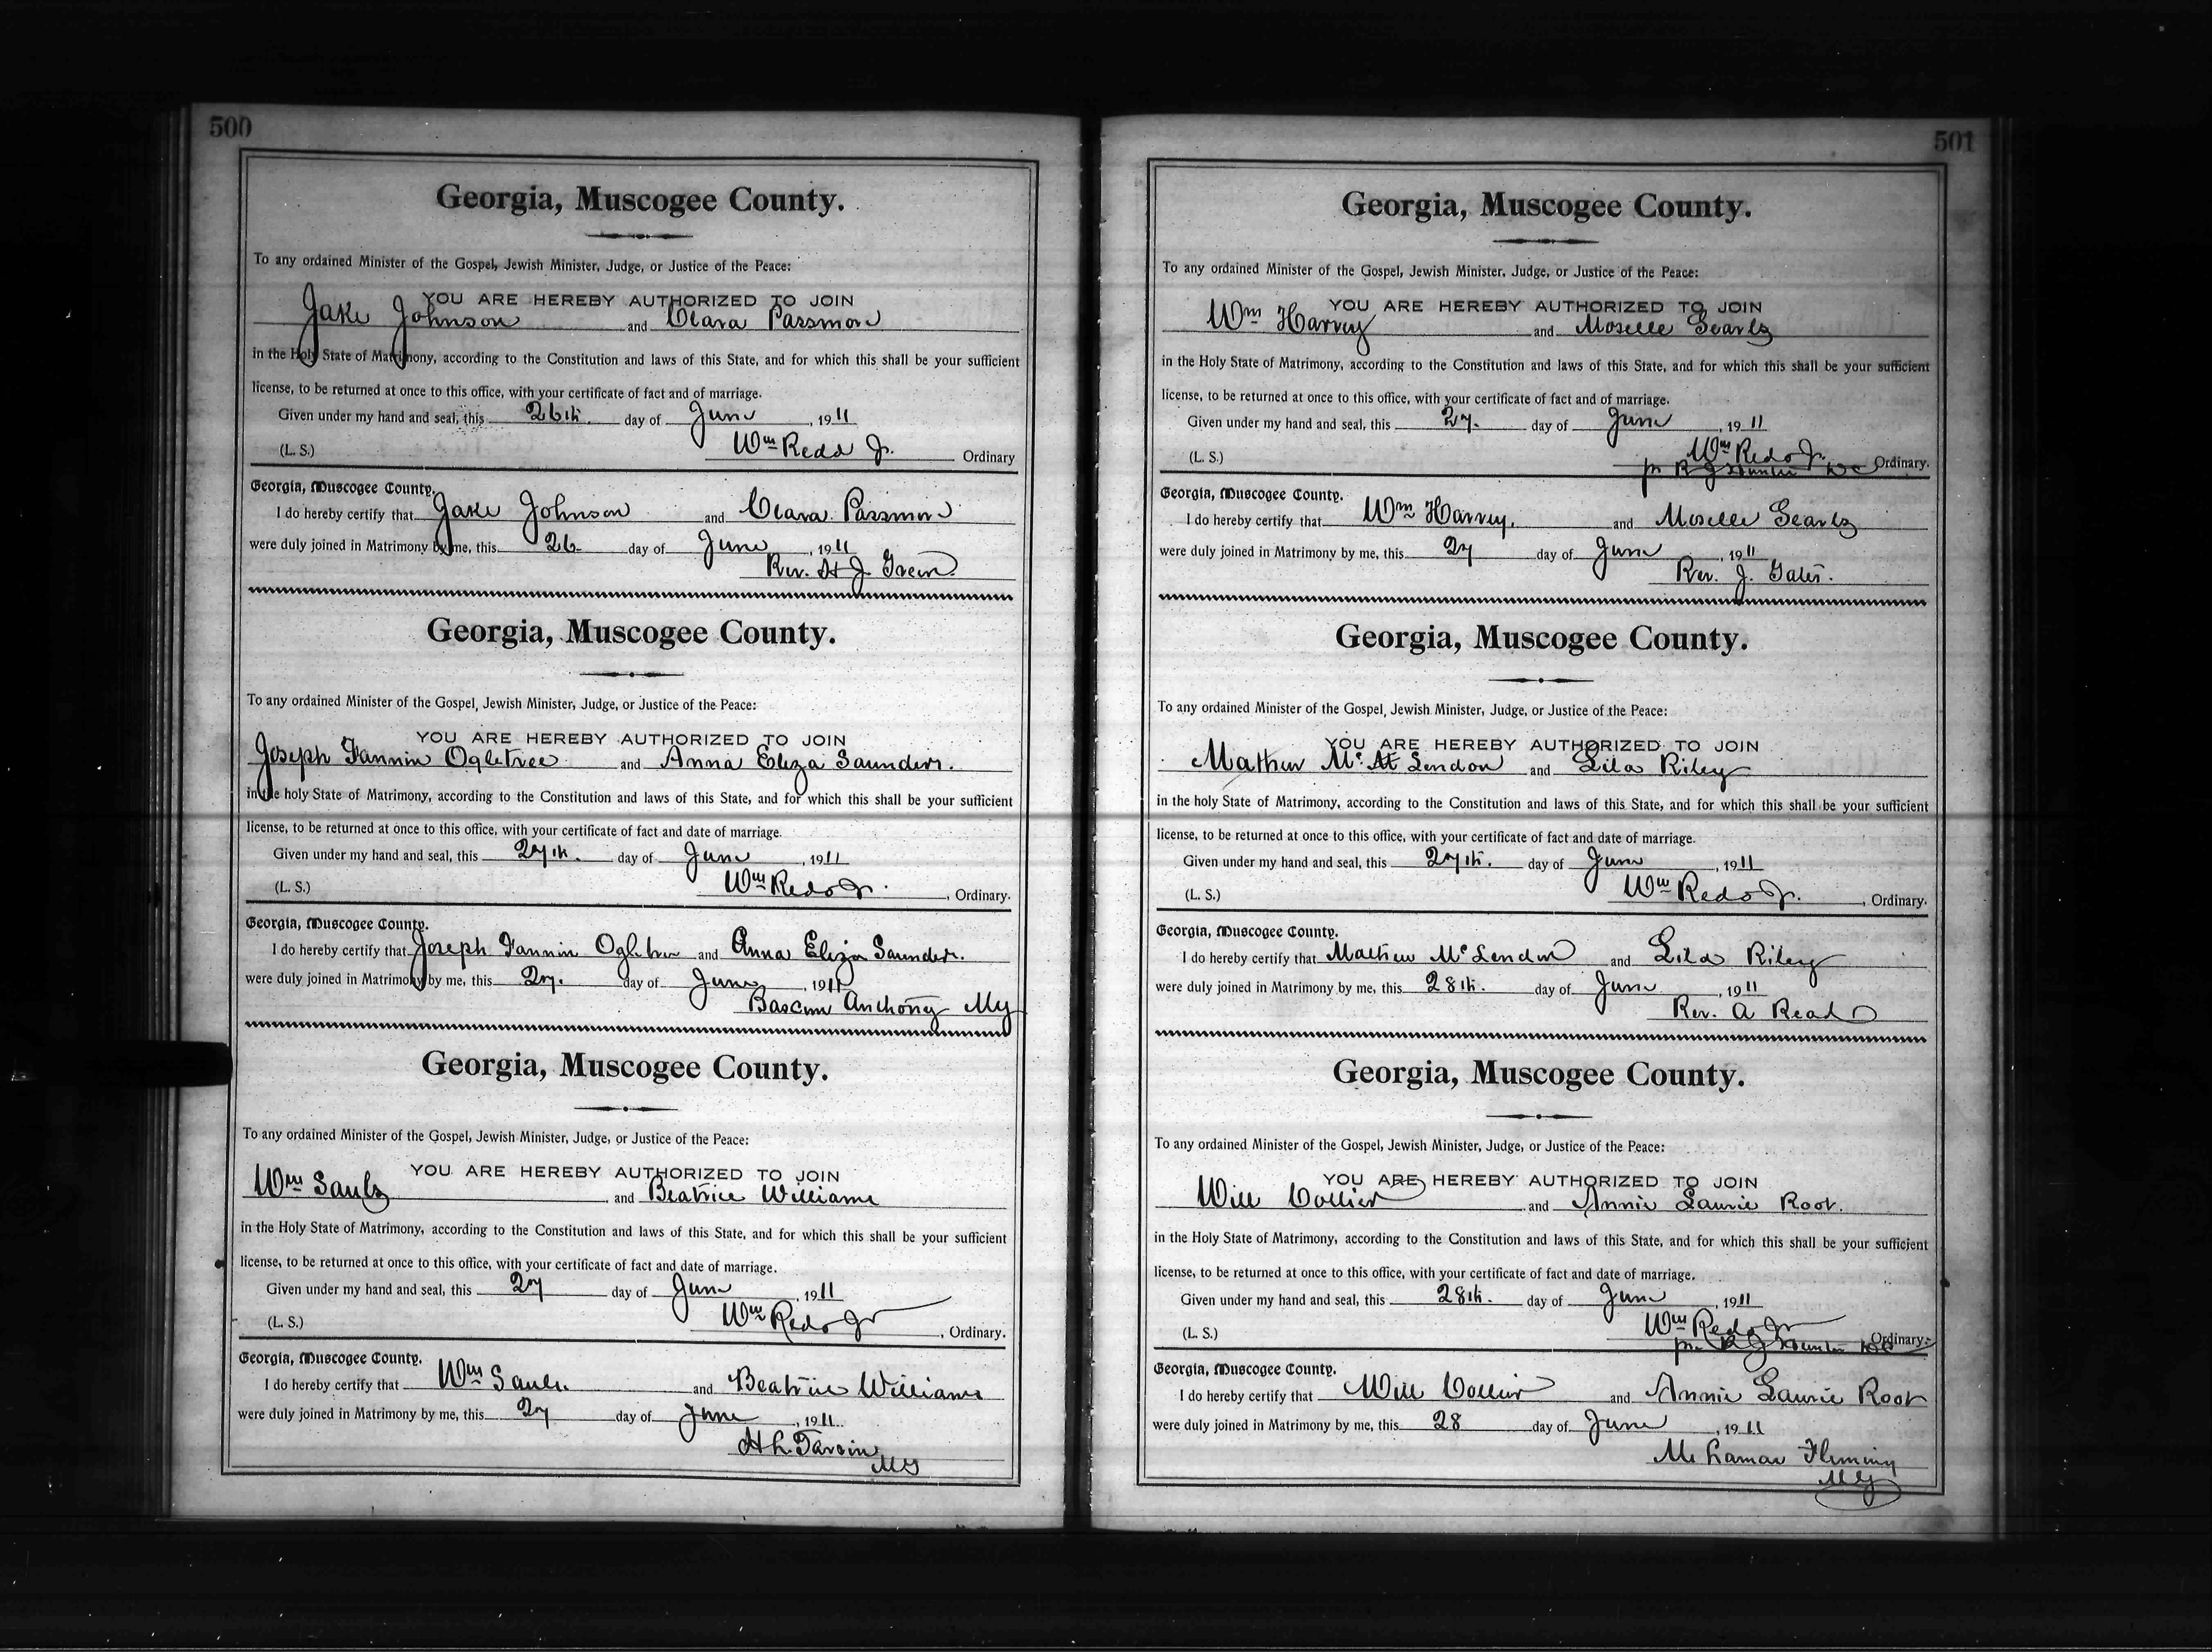 500
Georgia, Muscogee County.
To any ordained Minister of the Gospel, Jewish Minister, Judge, or Justice of the Peace:
YOU ARE HEREBY AUTHORIZED TO JOIN
Jake Johnson and Clara Passmore
in the Holy State of Matrimony, according to the Constitution and laws of this State, and for which this shall be your sufficient
license, to be returned at once to this office, with your certificate of fact and of marriage.
Given under my hand and seal, this 26th. day of June, 1911
Wm Redd Jr.
(L. S.) Ordinary
Georgia, Muscogee County.
I do hereby certify that Jake Johnson and Clara Passmore
were duly joined in Matrimony by me, this 26 day of June, 1911
Rev. H J Green
Georgia, Muscogee County.
To any ordained Minister of the Gospel, Jewish Minister, Judge, or Justice of the Peace:
YOU ARE HEREBY AUTHORIZED TO JOIN
Joseph Fannin Ogletree and Anna Eliza Saunders.
in the holy State of Matrimony, according to the Constitution and laws of this State, and for which this shall be your sufficient
license, to be returned at once to this office, with your certificate of fact and date of marriage.
Given under my hand and seal, this 27th. day of June, 1911
Wm Redd Jr.
(L. S.), Ordinary.
Georgia, Muscogee County.
I do hereby certify that Joseph Fannin Ogletree and Anna Eliza Saunders.
were duly joined in Matrimony by me, this 27. day of June, 1911
Bascom Anthony Mg
Georgia, Muscogee County.
To any ordained Minister of the Gospel, Jewish Minister, Judge, or Justice of the Peace:
YOU ARE HEREBY AUTHORIZED TO JOIN
Wm Sauls and Beatrice Williams
in the Holy State of Matrimony, according to the Constitution and laws of this State, and for which this shall be your sufficient
license, to be returned at once to this office, with your certificate of fact and date of marriage.
Given under my hand and seal, this 27 day of June, 1911
Wm Redd Jr
(L. S.), Ordinary.
Georgia, Muscogee County.
I do hereby certify that Wm Sauls. and Beatrice Williams
were duly joined in Matrimony by me, this 27 day of June, 1911.
H L Tarvin
MG
501
Georgia, Muscogee County.
To any ordained Minister of the Gospel, Jewish Minister, Judge, or Justice of the Peace:
YOU ARE HEREBY AUTHORIZED TO JOIN
Wm Harvey and Moselle
in the Holy State of Matrimony, according to the Constitution and laws of this State, and for which this shall be your sufficient
license, to be returned at once to this office, with your certificate of fact and of marriage.
Given under my hand and seal, this 27. day of June, 1911
Wm Redd Jr.
(L. S.) pr R J Hunter Ordinary.
Georgia, Muscogee County.
I do hereby certify that Wm Harvey. and Moselle
were duly joined in Matrimony by me, this 27 day of June, 1911
Rev. J. Gates.
Georgia, Muscogee County.
To any ordained Minister of the Gospel, Jewish Minister, Judge, or Justice of the Peace:
YOU ARE HEREBY AUTHORIZED TO JOIN
Mathew Mc Lendon and Lila Riley
in the holy State of Matrimony, according to the Constitution and laws of this State, and for which this shall be your sufficient
license, to be returned at once to this office, with your certificate of fact and date of marriage.
Given under my hand and seal, this 27th. day of June, 1911
Wm Redd Jr.
(L. S.), Ordinary.
Georgia, Muscogee County.
I do hereby certify that Mathew McLendon and Lila Riley
were duly joined in Matrimony by me, this 28th. day of June, 1911
Rev. A Read
Georgia, Muscogee County.
To any ordained Minister of the Gospel, Jewish Minister, Judge, or Justice of the Peace:
YOU ARE HEREBY AUTHORIZED TO JOIN
Will Collier and Annie Laurie Root.
in the Holy State of Matrimony, according to the Constitution and laws of this State, and for which this shall be your sufficient
license, to be returned at once to this office, with your certificate of fact and date of marriage.
Given under my hand and seal, this 28th. day of June, 1911
Wm Redd Jr
(L. S.) pr R J Hunter Ordinary.
Georgia, Muscogee County.
I do hereby certify that Will Collier and Annie Laurie Root
were duly joined in Matrimony by me, this 28 day of June, 1911
Lamar Fleming
MG